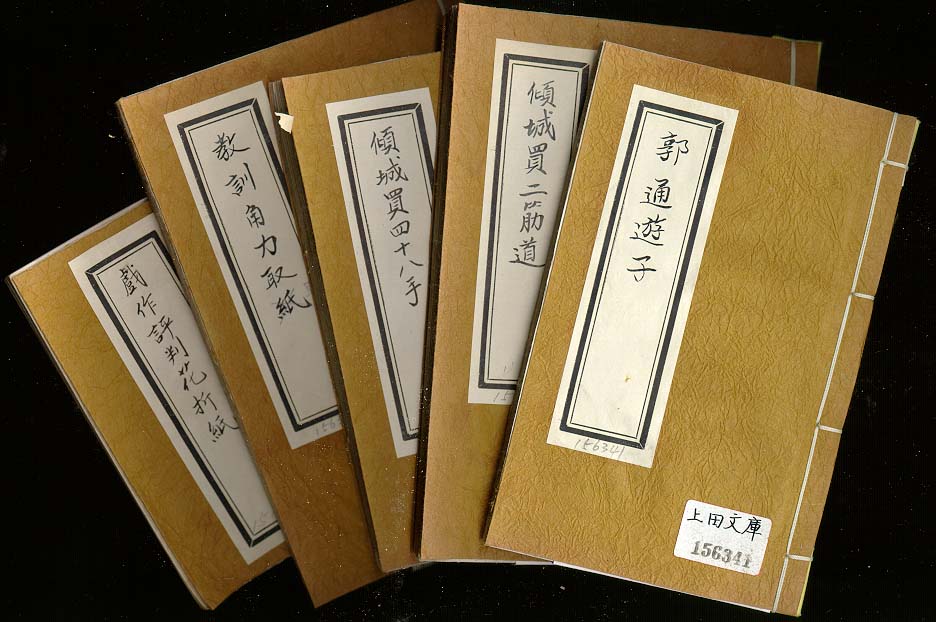 郭通遊子
156341
上田文庫
156341
傾城買二筋道
傾城買四十八手
教訓角力取紙
戯作評判花折紙